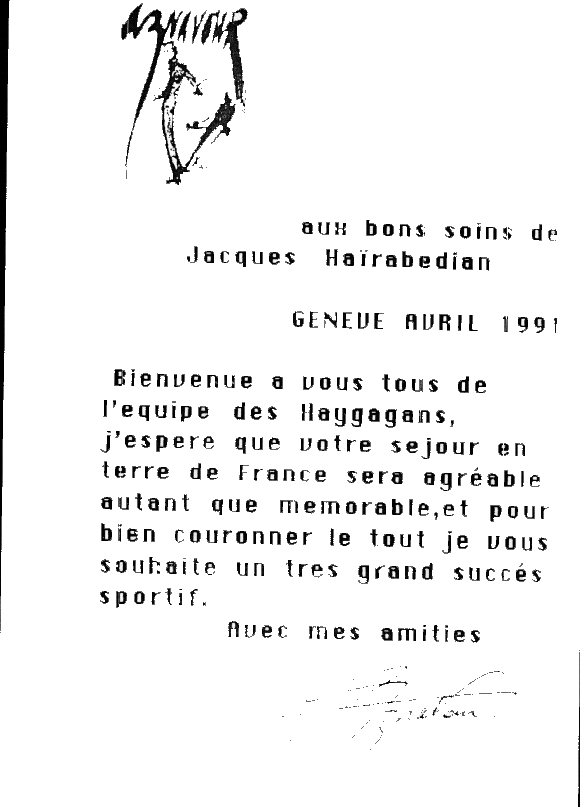 AZNAVOUR
aux bons soins de
Jacques Haïrabedian
GENEVE AVRIL 1991
Bienvenue a vous tous de
l'equipe des Haygagans,
j'espere que votre sejour en
terre de France sera agréable
autant que memorable,et pour
bien couronner le tout je vous
souhaite un tres grand succés
sportif.
Avec mes amities
Aznavour